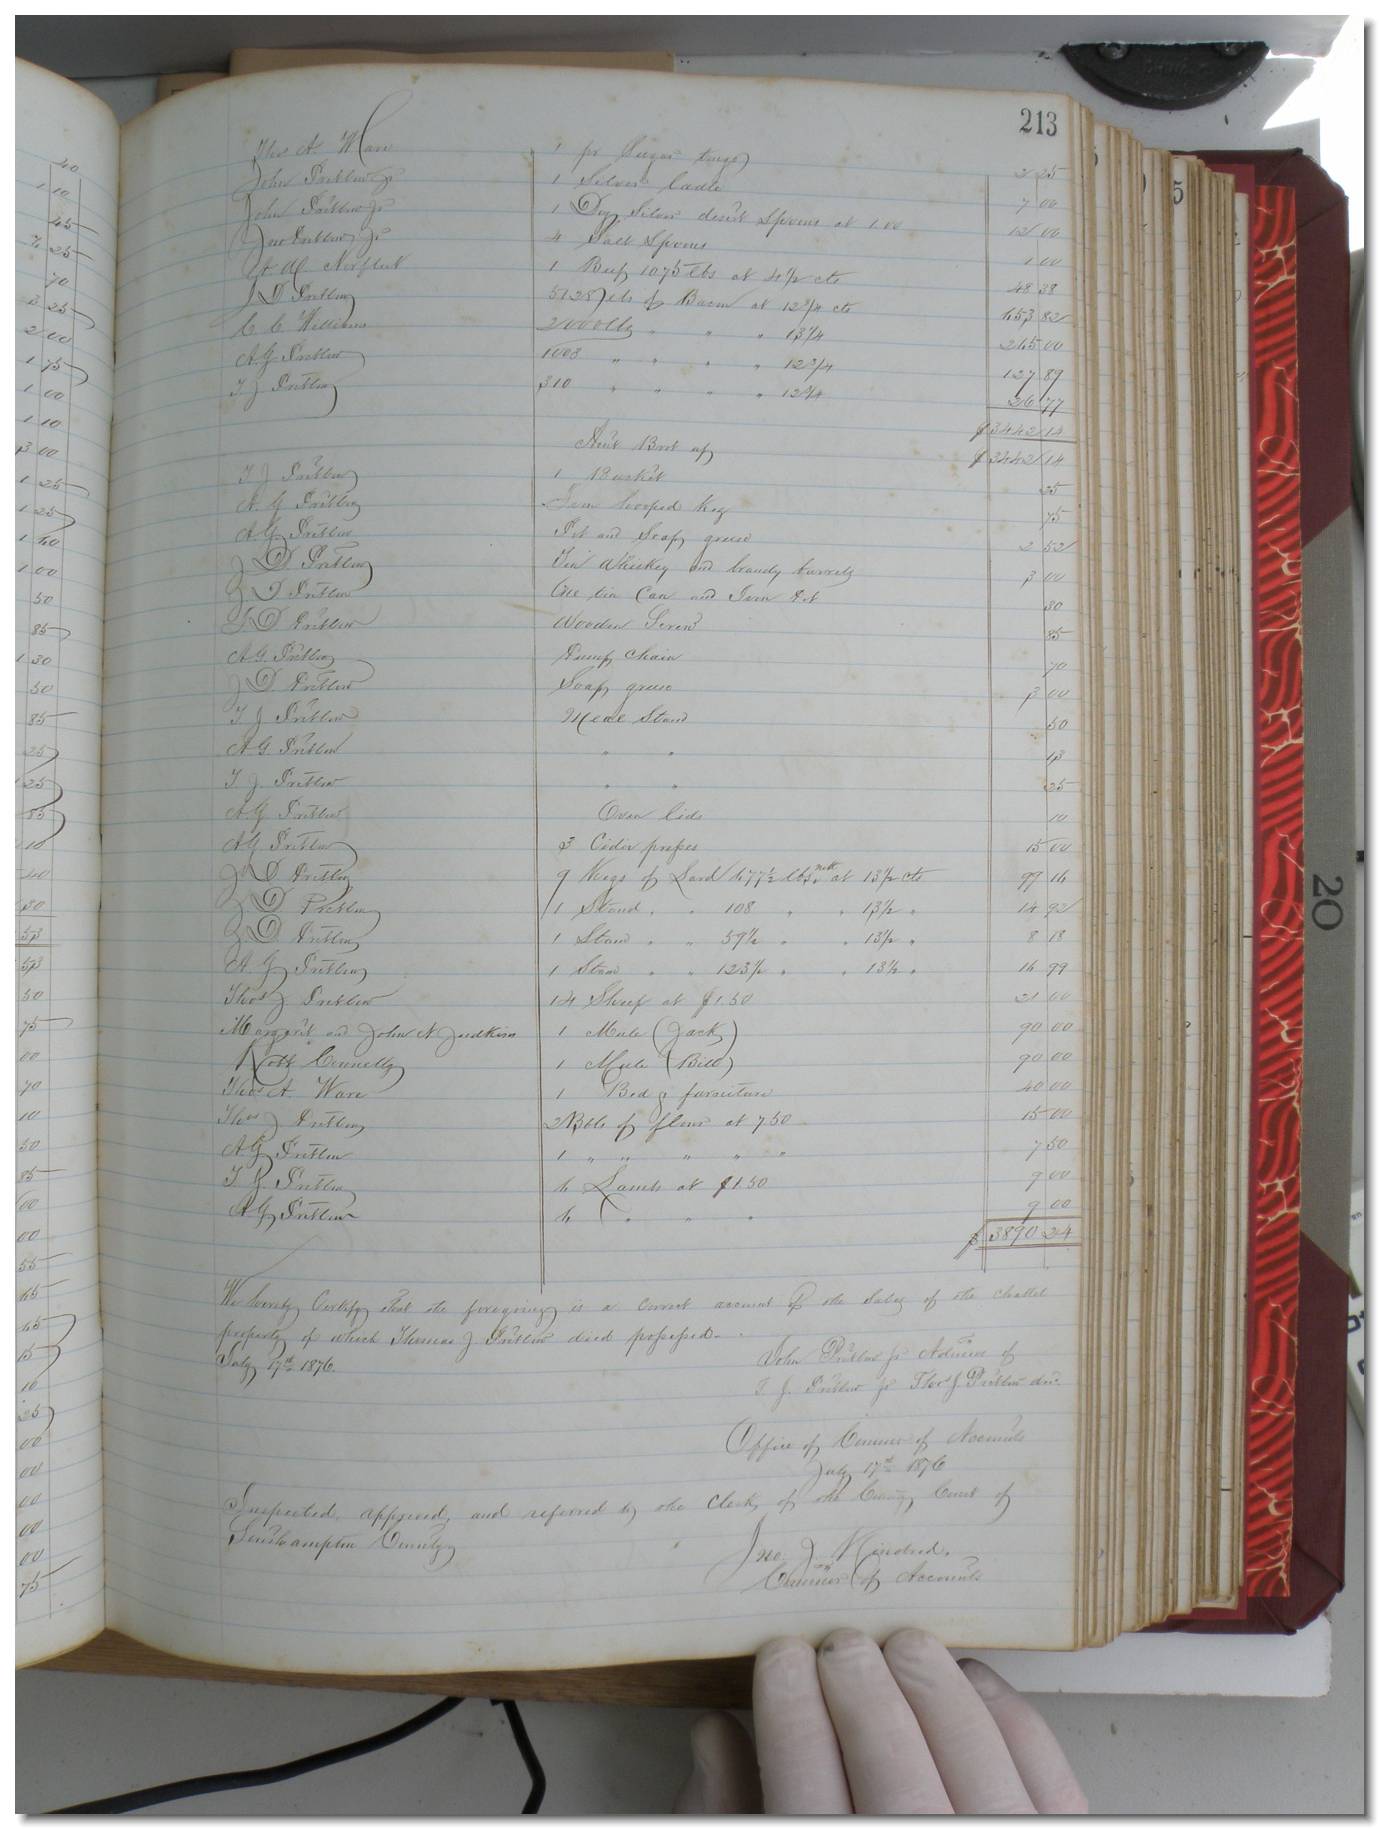 213
Thos A. Ware 1 pr Sugar tongs 2 25
John Pretlow Jr 1 Silver ladle 7 00
John Pretlow Jr 1 Doz Silver desert Spoons at 1.00 12 00
Jno Pretlow Jr 4 Salt Spoons 1 00
Norfleet 1 Beef 1075 lbs at 4 1/2 cts 48 38
J D Pretlow 5128 lbs of Bacon at 12 3/4 cts 653 82
C C Williams 2000 lbs " " " 13 1/4 265 00
A. G Pretlow 1003 " " " " 12 3/4 127 89
T J Pretlow 210 " " " " 12 3/4 26 77
$3442 14
Amt Brot up $3442 14
T J Pretlow 1 Basket 25
A. G Pretlow Iron hooped Keg 75
A. G. Pretlow Pot and Soap grease 2 52
J D Pretlow Ten Whiskey and brandy barrels 3 00
J D Pretlow One tin Can and Iron Pot 30
J D Pretlow Wooden Screw 85
A G. Pretlow Pump chain 70
J D. Pretlow Soap grease 3 00
T J Pretlow Meal Stand 50
A G Pretlow " " 13
T J. Pretlow " " 25
A. G. Pretlow Oven lids 10
A G Pretlow 3 Cider presses 15 00
J D Pretlow 9 Kegs of Lard 677 1/2 lbs. nett at 13 1/2 cts 99 16
J D. Pretlow 1 Stand . " 108 " . 13 1/2 " 14 92
J. D. Pretlow 1 Stand " " 59 1/2 " " 13 1/2 " 8 18
A. G Pretlow 1 Stand " " 123 1/2 " " 13 1/2 " 16 99
Thos J Pretlow 14 Sheep at $1.50 21 00
Margaret and John N Judkins 1 Mule (Jack) 90 00
Robt Connelly 1 Mule (Bill) 90 00
Thos A. Ware 1 Bed & furniture 40 00
Thos J Pretlow 2 Bbls of flour at 7.50 15 00
A G Pretlow 1 " " " " " 7 50
T. J. Pretlow 6 Lambs at $1.50 9 00
A. G. Pretlow 6 " " " 9 00
$3890 24
We hereby Certify that the foregoing is a correct account of the Sales of the chattel
property of which Thomas J Pretlow died possessed.
July 17th 1876. John Pretlow Jr Admior of
T. J. Pretlow Jr Thos J. Pretlow dec.
Office of Commr of Accounts
July 17th 1876
Inspected, approved, and referred to the Clerk of the County Court of
Southampton County
Jno. J Kindred.
Commr of Accounts
20